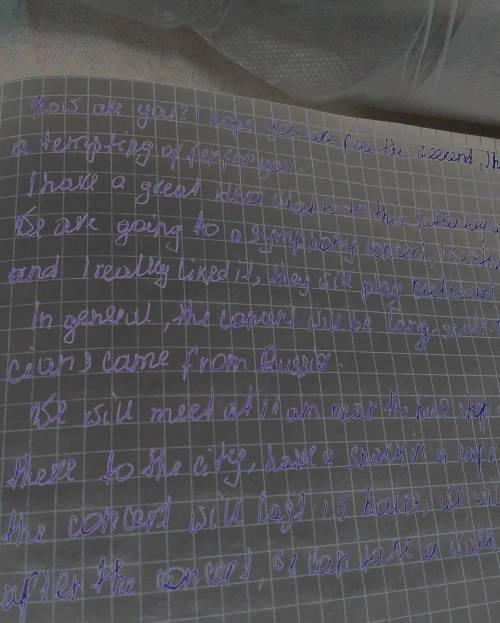 How are you? I hope you are free this weekend, I
a tempting offer for you.
I have a great idea what to do this saturday
We are going to a symphony concert, I
and I really liked it, they will play
In general, the concert will be long,
cians came from Russia.
We will meet at 11 am near the bus stop
there to the city, have a snack in a
the concert will last 1 5 hours, we
after the concert, we can take a walk